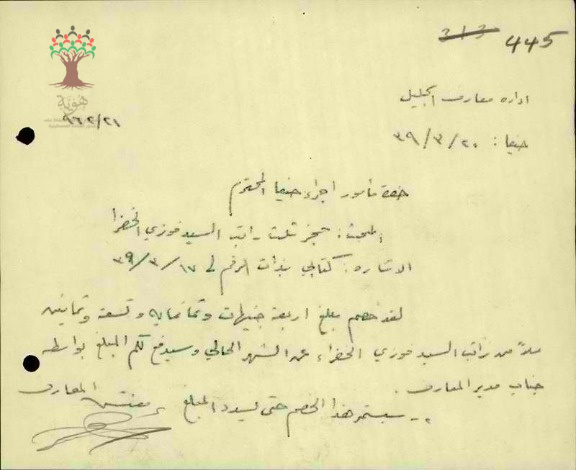 313
445
هوية
اداره معارف الجليل
٩٦٢/٢١
حيفا : ٢٠/٣/٣٩
حضرة مأمور اجراء حيفا المحترم
البحث : حجز ثلث راتب السيد فوزي الخضرا
الاشاره : كتابي بذات الرقم في ١٧/٣/٣٩
لقد خصم مبلغ اربعة جنيهات وثمانمايه وتسعة وثمانين
ملاً من راتب السيد فوزي الخضراء عن الشهر الحالي وسيدفع لكم المبلغ بواسطة
جناب مدير المعارف .
٢- سيستمر هذا الخصم حتى يسدد المبلغ
مفتش المعارف